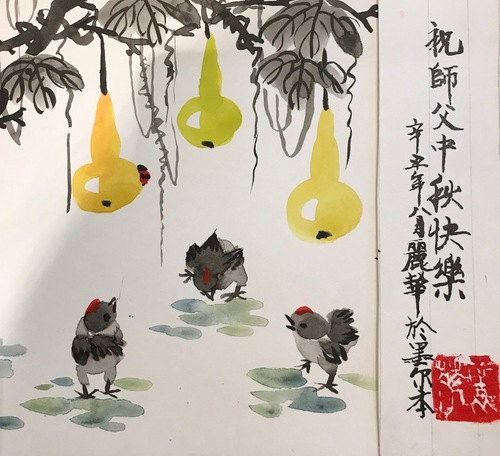 祝師父中秋快樂
辛丑年八月麗華於墨尔本